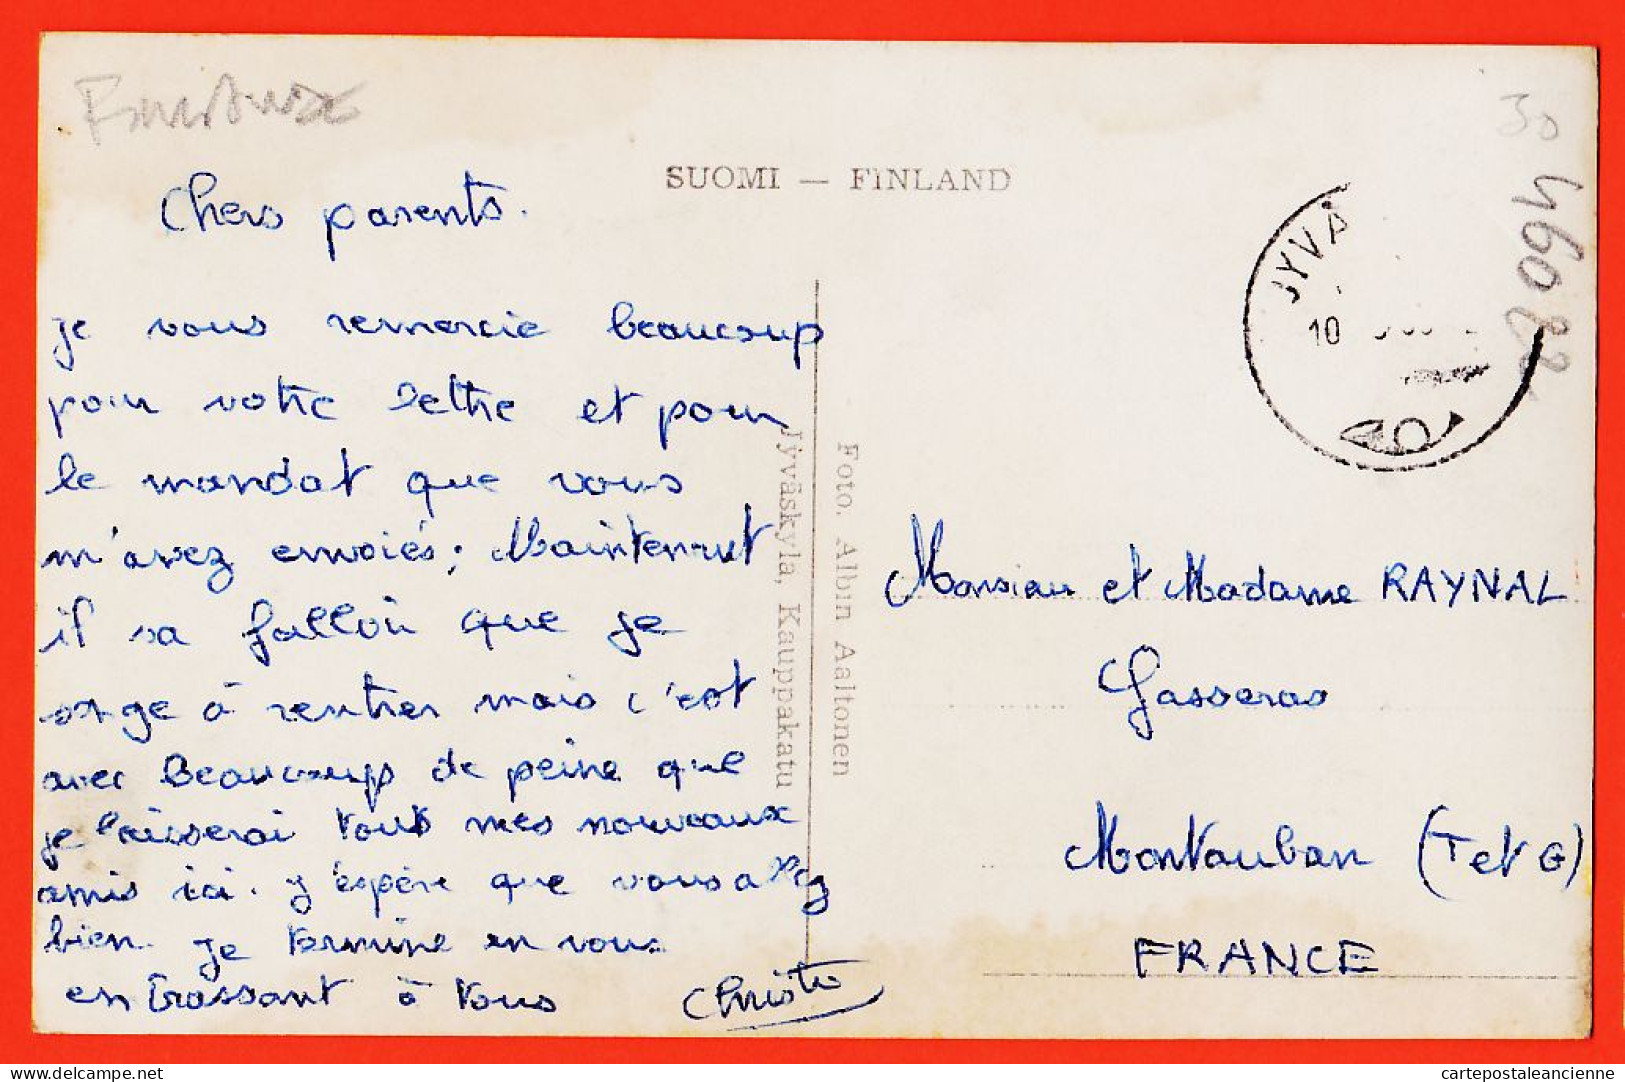 30
46082
SUOMI — FINLAND
JYVÄ
10
Chers parents.
je vous remercie beaucoup
pour votre lettre et pour
le mandat que vous
m'avez envoiés; Maintenant
il va falloir que je
songe à rentrer mais c'est
avec beaucoup de peine que
je laisserai tous mes nouveaux
amis ici. J'éspère que vous allez
bien. Je termine en vous
embrassant à tous Christo
Foto. Albin Aaltonen
Jyväskyla, Kauppakatu
Monsieur et Madame RAYNAL
Gasseras
Montauban (T et G)
FRANCE
delcampe.net
cartepostaleancienne